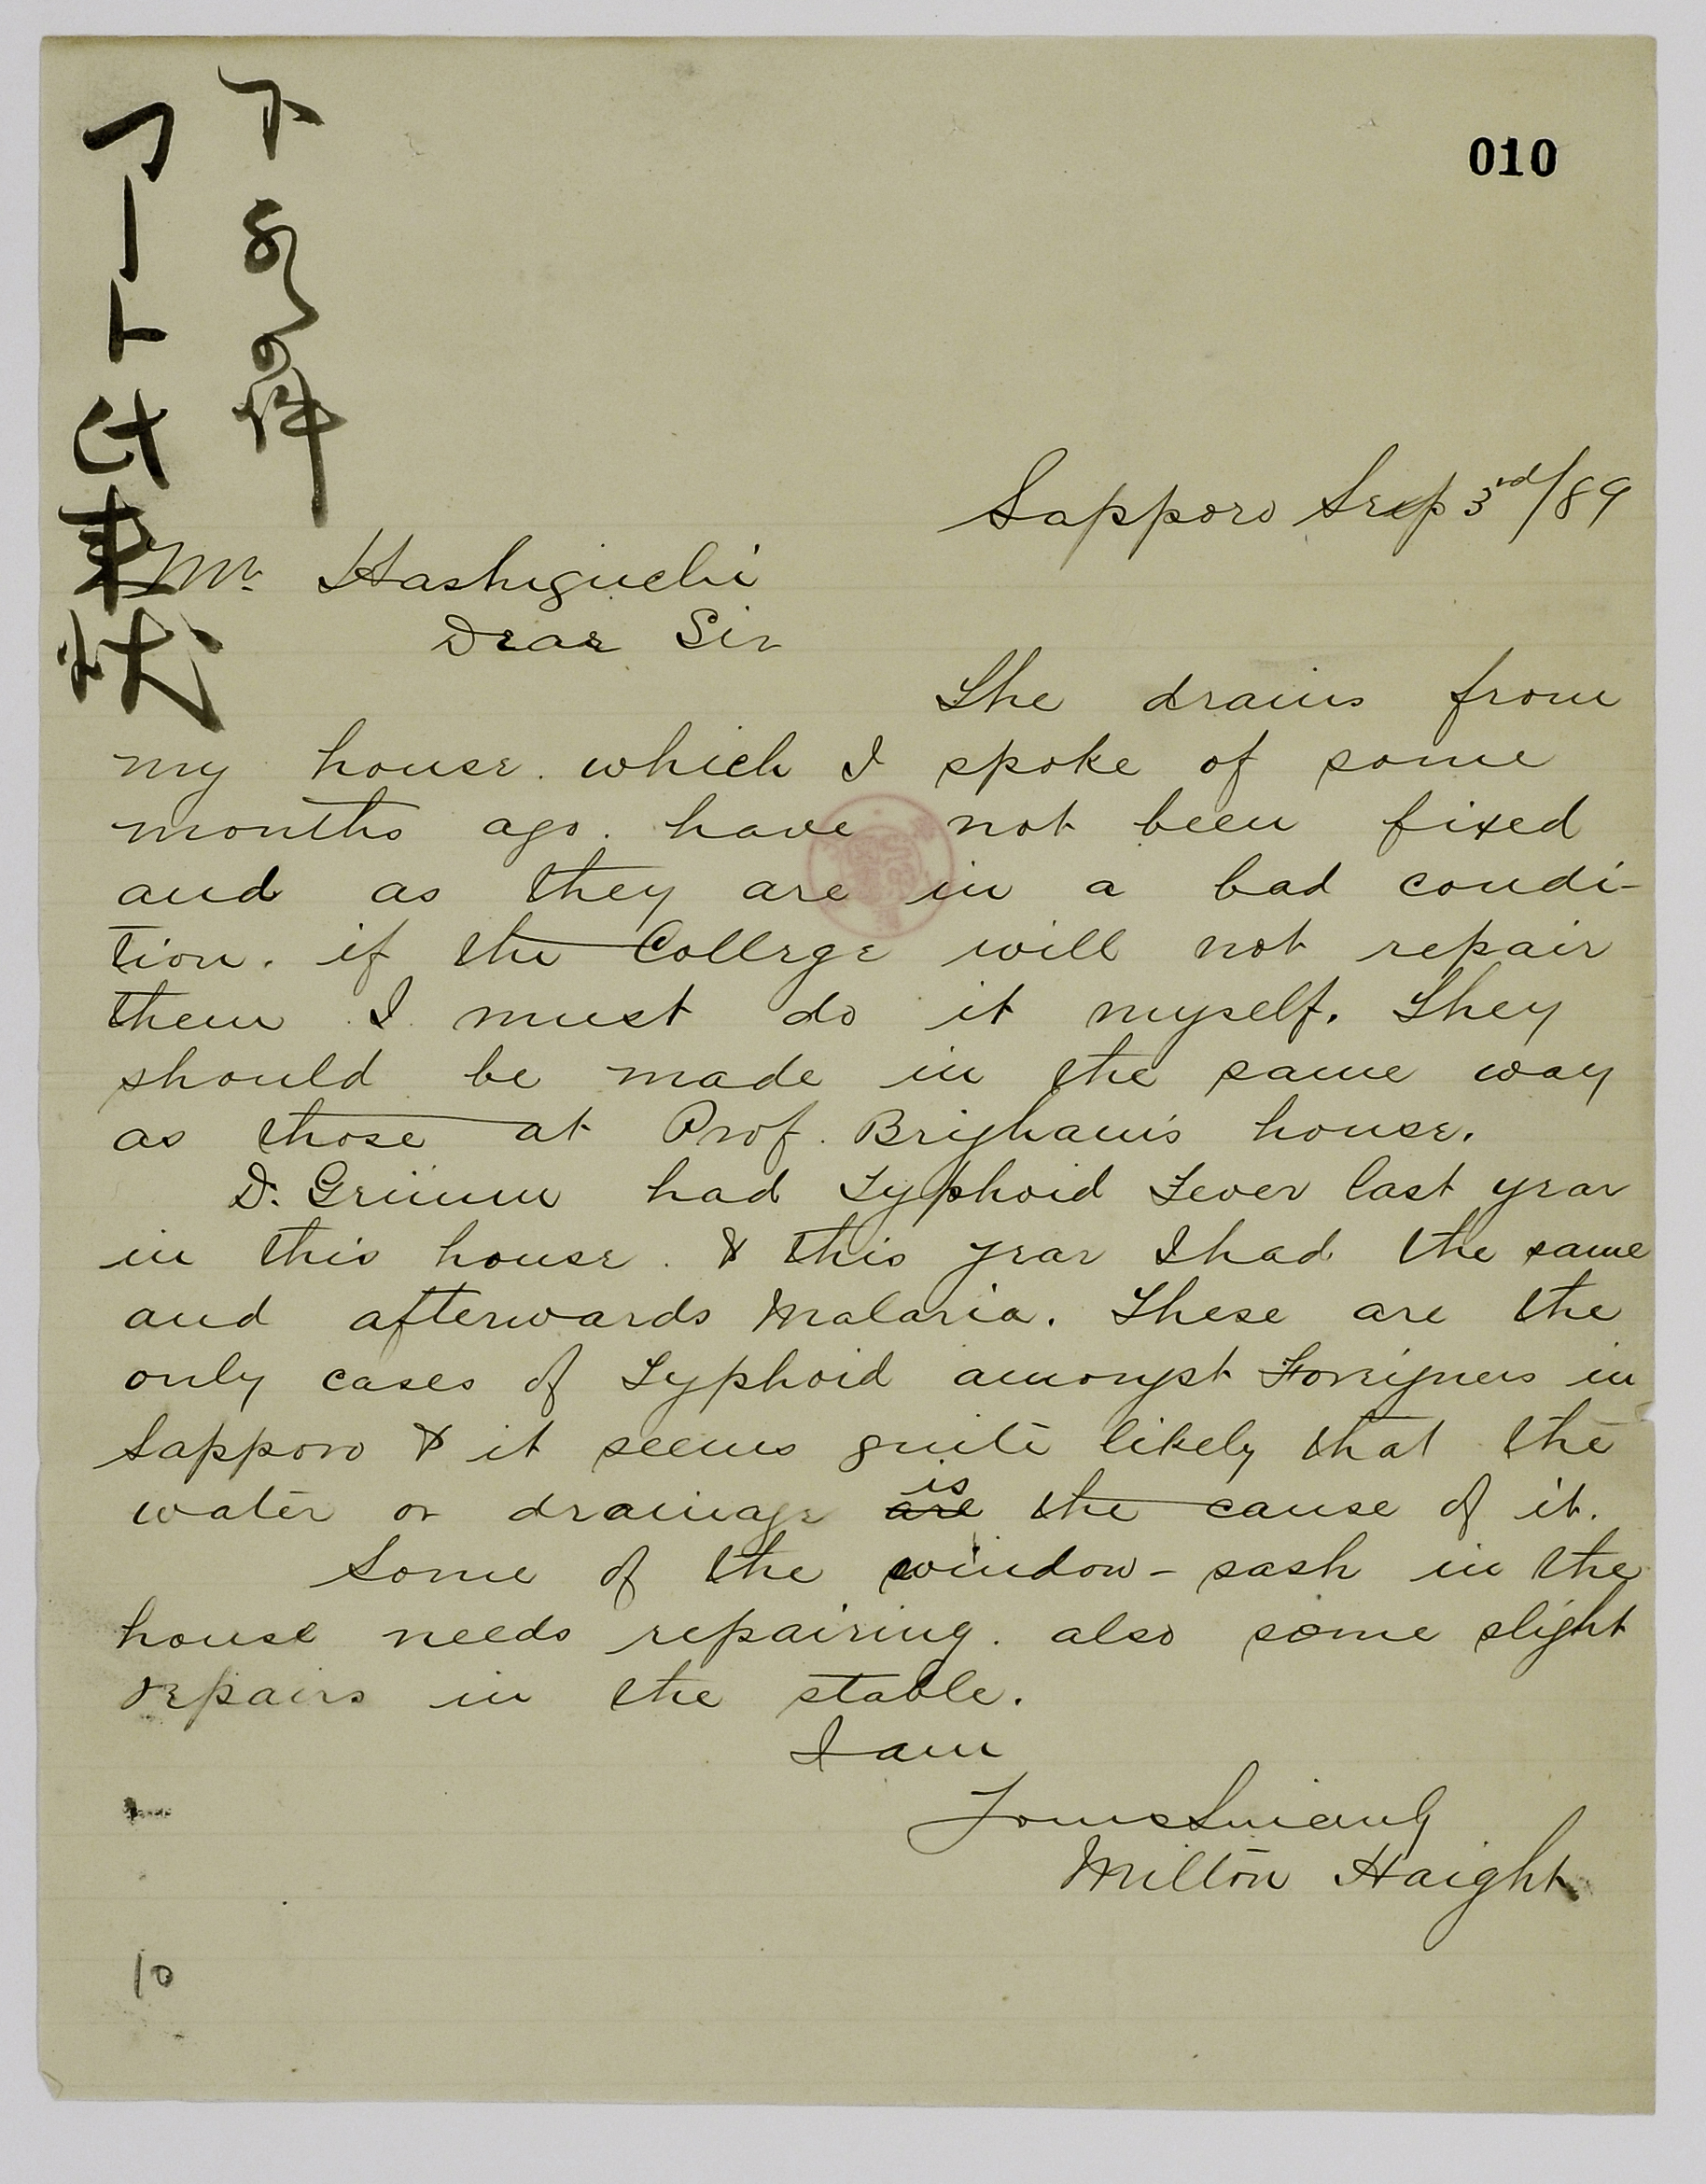 010
下水の件
フート氏来状
Sapporo Sep 3rd/89
Mr. Hashiguchi
Dear Sir
The drains from
my house. which I spoke of some
months ago. have not been fixed
and as they are in a bad condi-
tion. if the College will not repair
them I must do it myself. They
should be made in the same way
as those at Prof. Brigham's house.
D. Grimm had Typhoid Fever last year
in this house. & this year I had the same
and afterwards Malaria. These are the
only cases of Typhoid amongst Foreigners in
Sapporo & it seems quite likely that the
water or drainage are is the cause of it.
Some of the window-sash in the
house needs repairing. also some slight
repairs in the stable.
I am
Yours Sincerely
Milton Haight
10